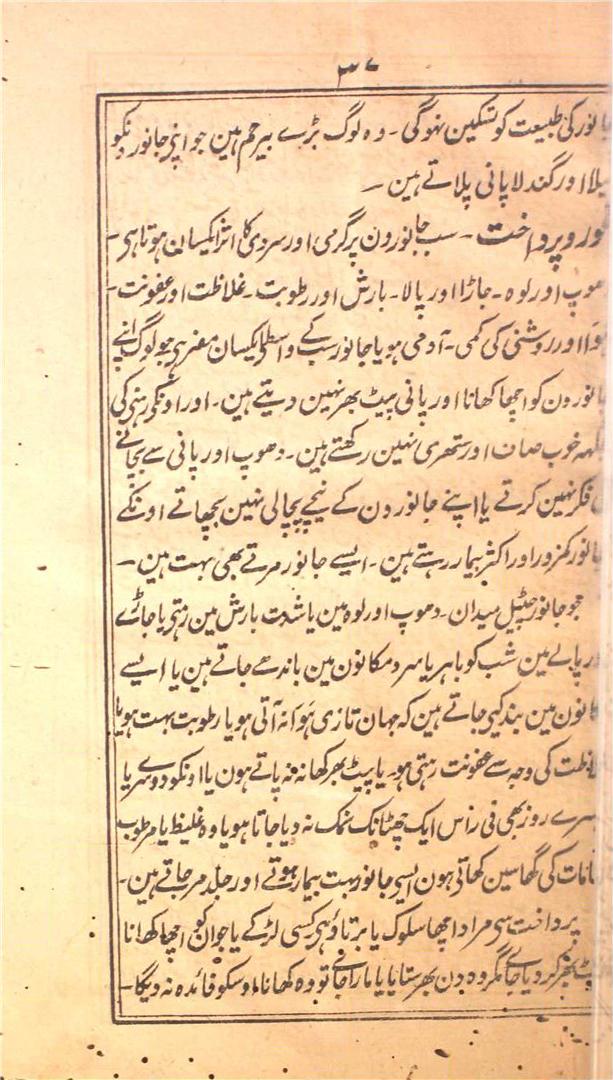 ۳۷
جانور کی طبیعت کو تسکین نہوگی ۔ وہ لوگ بڑے بیرحم ہین جو اپنی جانورونکو
میلا اور گندلا پانی پلاتے ہین ۔
غور و پرداخت ۔ سب جانورون پر گرمی اور سردی کا اثر ایکسان ہوتا ہی ۔
دھوپ اور لوہ ۔ جاڑا اور پالا ۔ بارش اور رطوبت ۔ غلاظت اور عفونت ۔
ہوَا اور روشنی کی کمی ۔ آدمی ہو یا جانور سب کے واسطے ایکسان مضر ہی جو لوگ اپنے
جانورون کو اچھا کھانا اور پانی پیٹ بھر نہین دیتے ہین ۔ اور اونکی رہنی کی
جگہہ خوب صاف اور ستھری نہین رکھتے ہین ۔ دھوپ اور پانی سے بچانے
کی فکر نہین کرتے یا اپنے جانورون کے نیچے پچالی نہین بچھاتے اونکے
جانور کمزور اور اکثر بیمار رہتے ہین ۔ ایسے جانور مرتے بھی بہت ہین ۔
جو جانور چٹیل میدان ۔ دھوپ اور لوہ مین یا شدت بارش مین رہتی یا جاڑے
اور پالے مین شب کو باہر یا سرد مکانون مین باندھے جاتے ہین یا ایسے
مکانون مین بند کیی جاتے ہین کہ جہان تازی ہوَا نہ آتی ہو یا رطوبت بہت ہو یا
غلاظت کی وجہ سے عفونت رہتی ہو ۔ یا پیٹ بھر کھانہ نہ پاتے ہون یا اونکو دوسرے یا
تیسرے روز بھی فی رأس ایک چھٹانک نمک نہ دیا جاتا ہو یا وہ غلیظ یا مرطوب
مقامات کی گھاسین کھاتی ہون ایسی جانور بہت بیمار ہوتے اور جلد مر جاتے ہین ۔
پرداخت سی مراد اچھا سلوک یا برتاؤ ہی کسی لڑکے یا جوان کو اچھا کھانا
پیٹ بھر کر دیا جائے مگر وہ دن بھر ستایا یا مارا جائے تو وہ کھانا اوسکو فائدہ نہ دیگا ۔